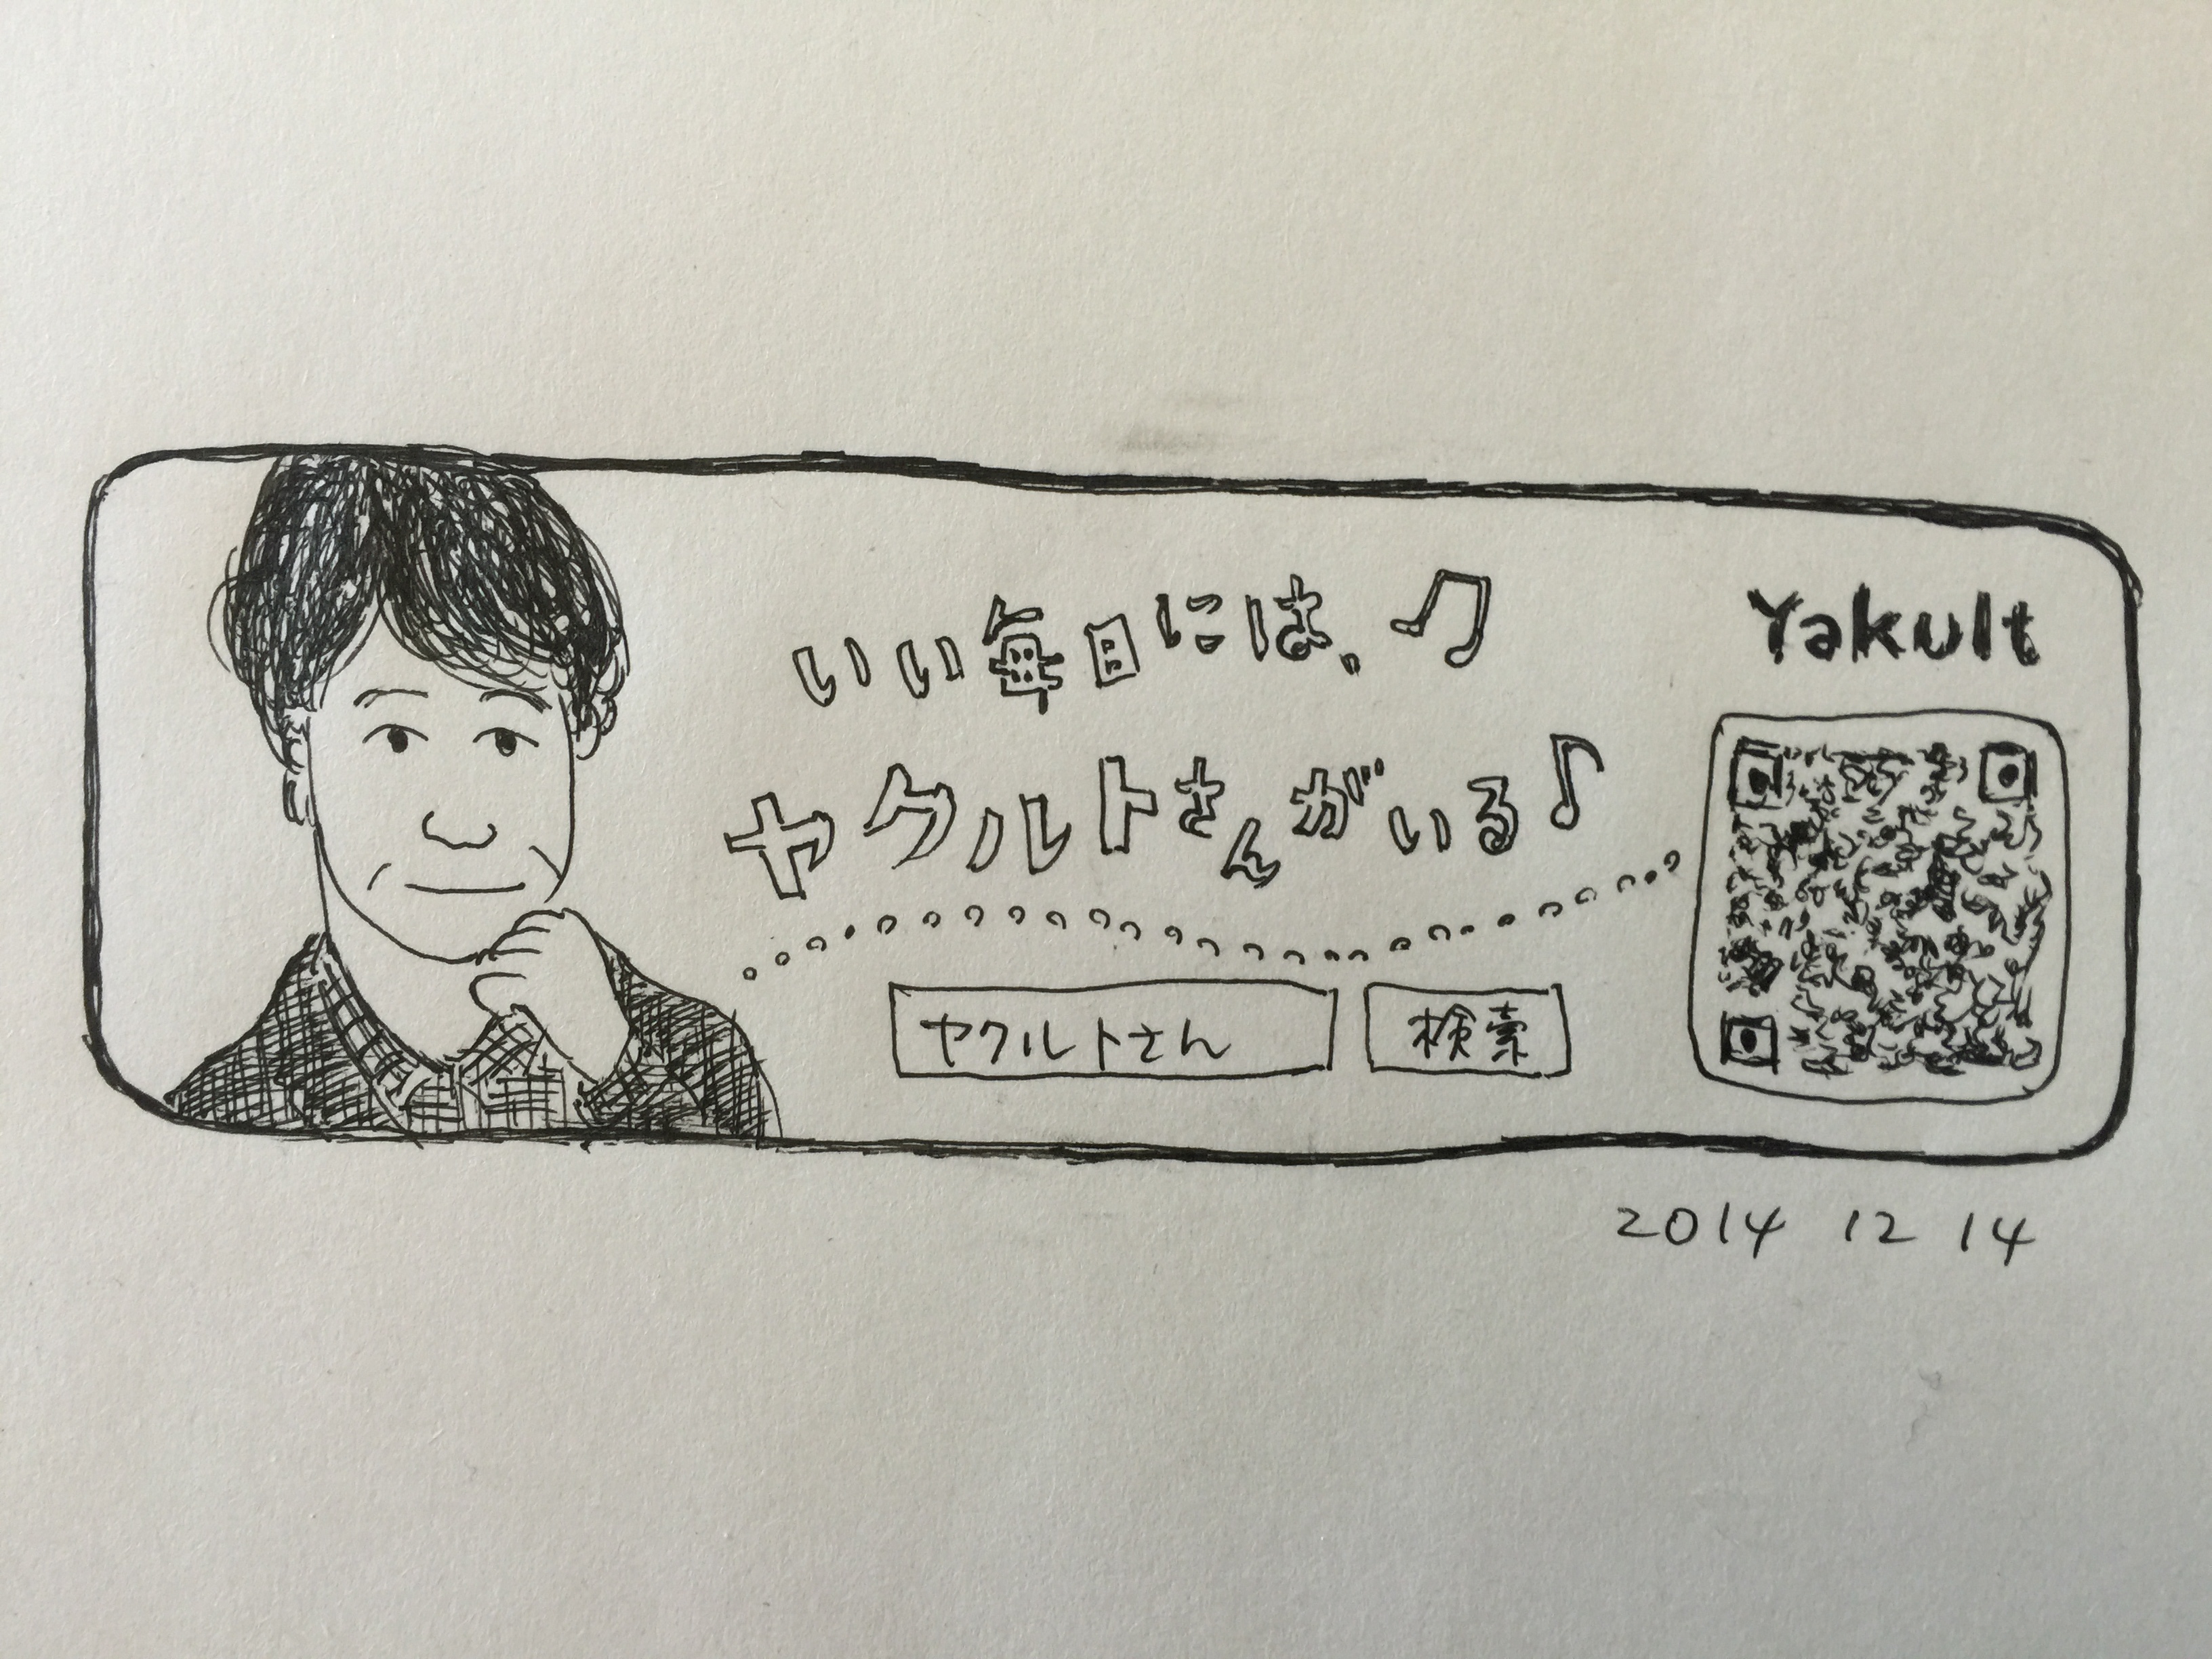 いい毎日には、♫
ヤクルトさんがいる♪
ヤクルトさん 検索
Yakult
2014 12 14